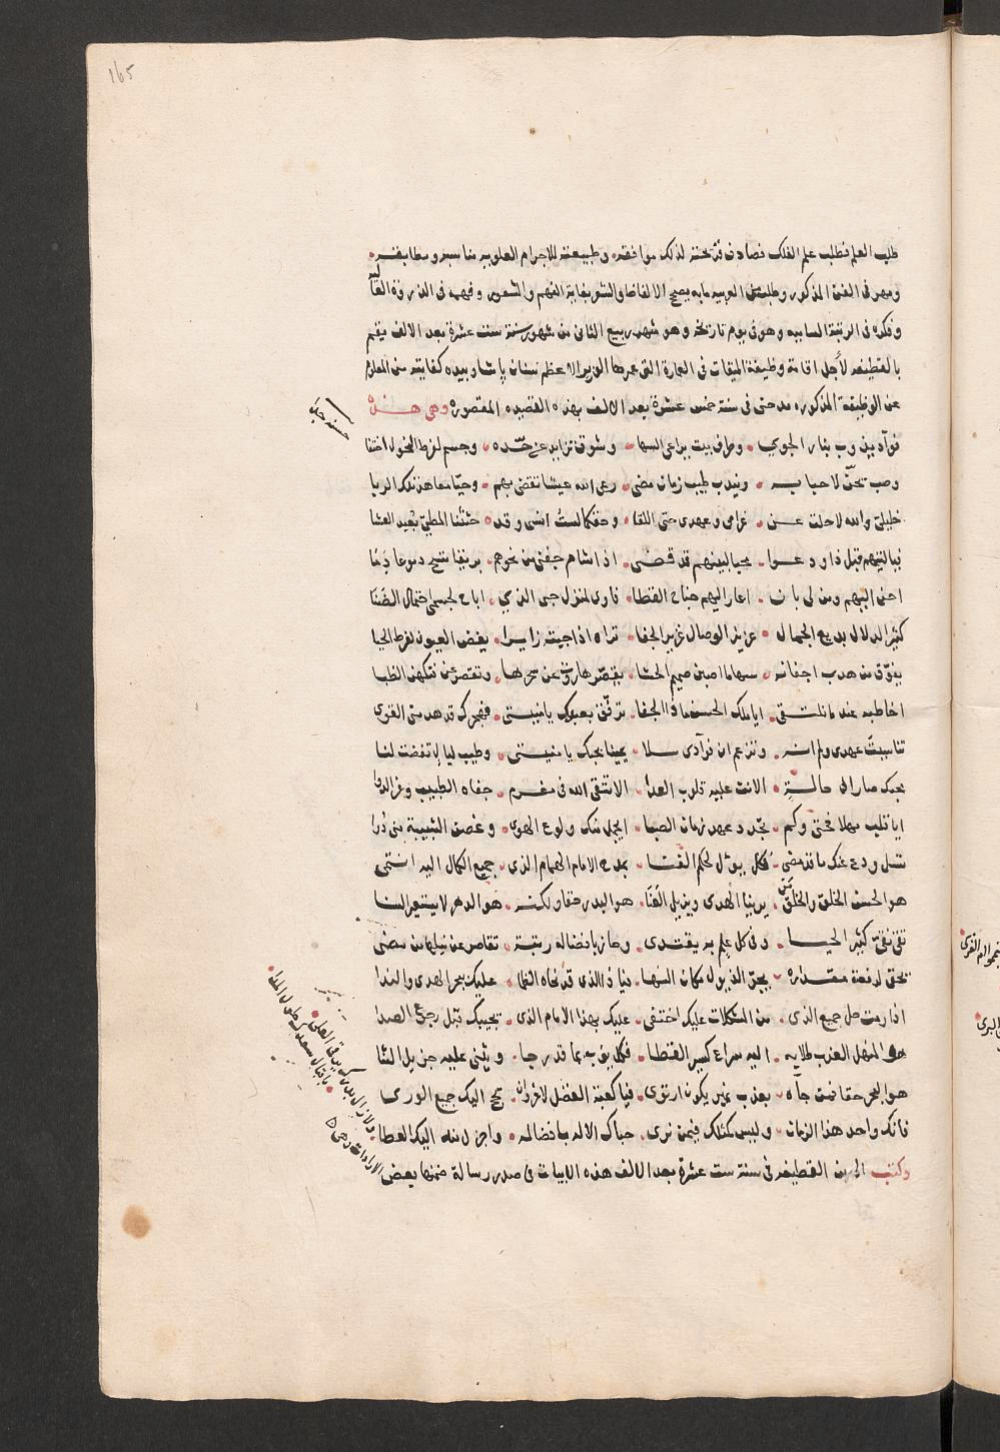 165
طلب العلم فطلب علم الفلك فصادف قريحته لذلك موافقه وطبيعته للاجرام العلويه مناسبه ومطابقه
ومهر فى الفن المذكور وطلب من العربيه ما به يصحح الالفاظ والشعر بغاية الفهم والشعور وفهمه فى الذروة العاليه
وفكره فى الرتبة الساميه وهو فى يوم تاريخه وهو شهر ربيع الثانى من شهور سنة ست عشرة بعد الالف مقيم
بالقطيفه لأجل اقامة وظيفة الميقات فى العمارة التى عمرها الوزير الاعظم سنان پاشا وبيده كفايته من المعلوم
عن الوظيفة المذكوره مدحنى فى سنة خمس عشرة بعد الالف بهذه القصيده المقصوره وهى هذه
فوآد يذوب بنار الجوي وطرف يبيت يراعى السها وشوق تزايد عن حدّه وجسم لفرط النحول اختفا
وصب تحنّ لاحبابه ويندب طيب زمان مضى رعى الله عيشا تقضى بهم وحيّا معاهد تلك الربا
خليلىّ والله لا حلت عن غرامى وعهدى حتى اللقا وحقكما لست انسى وقد حثثنا المطيّ بُعيد العشا
فياليتهم قبل ذا ودعوا محبا لبينهم قد قضى اذا شام جفنى من نحوهم بريقا سح دموعا دِمَا
احن اليهم ومن لى بان اعار اليهم جناح القطا فاوى لمنزل حبى الذي اباح لجسمى احتمال الضنا
كثير الدلال بديع الجمال عزيز الوصال غزير الجفا تراه اذا جيته زايرا يغض العيون لفرط الحيا
يفوّق من هدب اجفانه سهاما اصبن صميم الحشا يقصّر هاروت عن سحرها وتقصر عن فتكهن الظبا
اخاطبه عندما نلتقى ايا ملك الحسن ماذا الجفا ترفّق بعبدك يا منيتى فهجرك قد هد منى القوى
تناسيتَ عهدى ولم انسه وتزعم ان فوآدى سلا يمينا بحبك يا منيتى وطيب ليال تقضت لنا
بحبك صار الى حالةٍ الانت عليه قلوب العدا الا تتقى الله فى مغرم جفاه الطبيب وعز الدوا
ايا قلب مهلا فحتى وكم تجدد عهد زمان الصبا ايجمل منك ولوع الهوى وغصن الشبيبة منى ذوا
تسل ودع عنك ما قد مضى فكل يؤل لحكم الفنا بمدح الامام الهمام الذى جميع الكمال اليه انتمى
هو الحسن الخلق والخلق مَن يرينا الهدى ويزيل العَنَا هو البدر حقا ولكنه هو الدهر لا يستعير السنا
تقى نقى كثير الحيا وفى كل علم به يقتدى وحاز بافضاله رتبة تقاصر عن نيلها من مضى
تحق لرفعة مقداره بجق الذيول مكان السها فيا ذا الذى قد نحاه الظما عليك ببحر الهدى والندا
اذا رمت حل جميع الذى من المشكلات عليك اختفى عليك بهذا الامام الذى يجيبك قبل رجوع الصدا
هو المنهل العذب طلابه اليه سراع كسير القطا فكل يؤب بما قد رجا ويثنى عليه جزيل الثنا
هو البحر حقا فمن جآه بعذب نمير يكون ارتوى فيا كعبة الفضل لا غرو ان تحج اليك جميع الورى
فانك واحد هذا الزمان وليس كمثلك فيمن نرى حباك الاله بافضاله واجزل منه اليك العطا
وكتب الى من القطيفه فى سنة ست عشرة بعد الالف هذه الابيات فى صدر رسالة ضمنها بعض
حسن جلبى
ولازال بدرك يرقى العلى
باقبال سعدك طول المدا
الارادات وهى